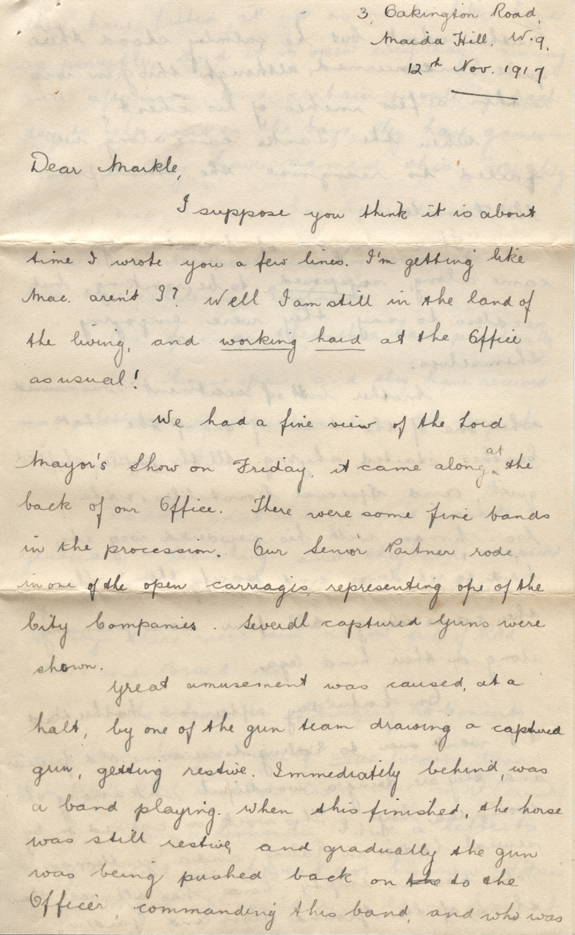 3, Oakington Road,
Maida Hill. W.9.
12th Nov. 1917
Dear Markle,
I suppose you think it is about
time I wrote you a few lines. I'm getting like
Mac. aren't I? Well I am still in the land of
the living, and working hard at the Office
as usual!
We had a fine view of the Lord
Mayor's Show on Friday, it came along at the
back of our Office. There were some fine bands
in the procession. Our Senior Partner, rode
in one of the open carriages, representing one of the
City Companies. Several captured Guns were
shown.
Great amusement was caused, at a
halt, by one of the gun team drawing a captured
gun, getting restive. Immediately behind, was
a band playing. When this finished, the horse
was still restive and gradually the gun
was being pushed back on the to the
Officer, commanding this band, and who was